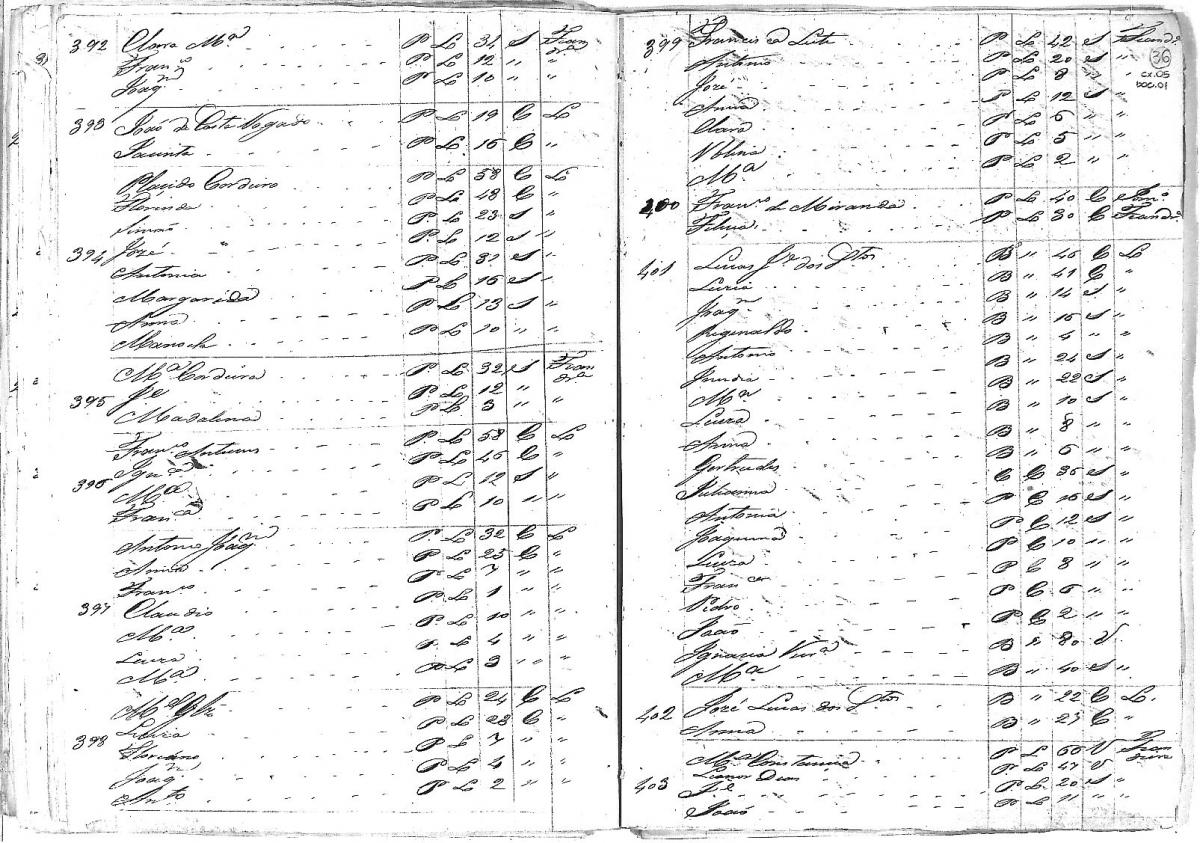 392 Clara Mª P L 34 S Fian drª
Franco P L 12 " "
Joaqm P L 10 " "
393 João da Costa Nogado P L 19 C L
Jacinta P L 16 C "
Placido Cordeiro P L 58 C L
Florinda P L 48 C "
Simão P L 23 S "
394 José P L 12 S "
Antonia P L 32 S "
Margarida P L 16 S "
Anna P L 13 S "
Manoela P L 10 " "
Mª Cordeira P L 32 S Fian drª
395 Je P L 12 " "
Madalena P L 3 " "
Franco Antunes P L 58 C L
Igna P L 46 C "
396 Mª P L 12 S "
Franca P L 10 " "
Antonio Joaqm P L 32 C L
Anna P L 25 C "
Franco P L 7 " "
397 Claudio P L 1 " "
Mª P L 10 " "
Luiza P L 4 " "
Mª P L 3 " "
Mel P L 24 C L
Luiza P L 28 C "
398 Floriano P L 7 " "
Joaqm P L 4 " "
Anto P L 2 " "
36
cx.05
DOC.01
399 Francisca Leite P L 42 S Fiandª
Antonio P L 20 S "
José P L 8 " "
Anna P L 12 S "
Clara P L 6 " "
P L 5 " "
Mª P L 2 " "
400 Franco de Miranda P L 40 C
P L 30 C Fiandª
401 Lucas Je dos Stos B " 46 C L
Luzia B " 41 C "
Joaqm B " 14 S "
Reginaldo B " 16 S "
Antonio B " 4 " "
B " 24 S "
Mª B " 22 S "
Luiza B " 10 S "
Anna B " 8 " "
Gertrudes B " 6 " "
Julianna C C 36 S "
Antonia P C 16 S "
Joaquina P C 12 S "
Luiza P C 10 " "
Franco P C 8 " "
Pedro P C 6 " "
João P C 2 " "
Ignacia B " 80 V
Mª B " 40 S "
402 José Lucas dos Stos B " 22 C L
Anna B " 23 C "
Mª Constancia P L 66 V
Leanor Dias P L 47 V
403 Je P L 20 S "
João P L 11 " "